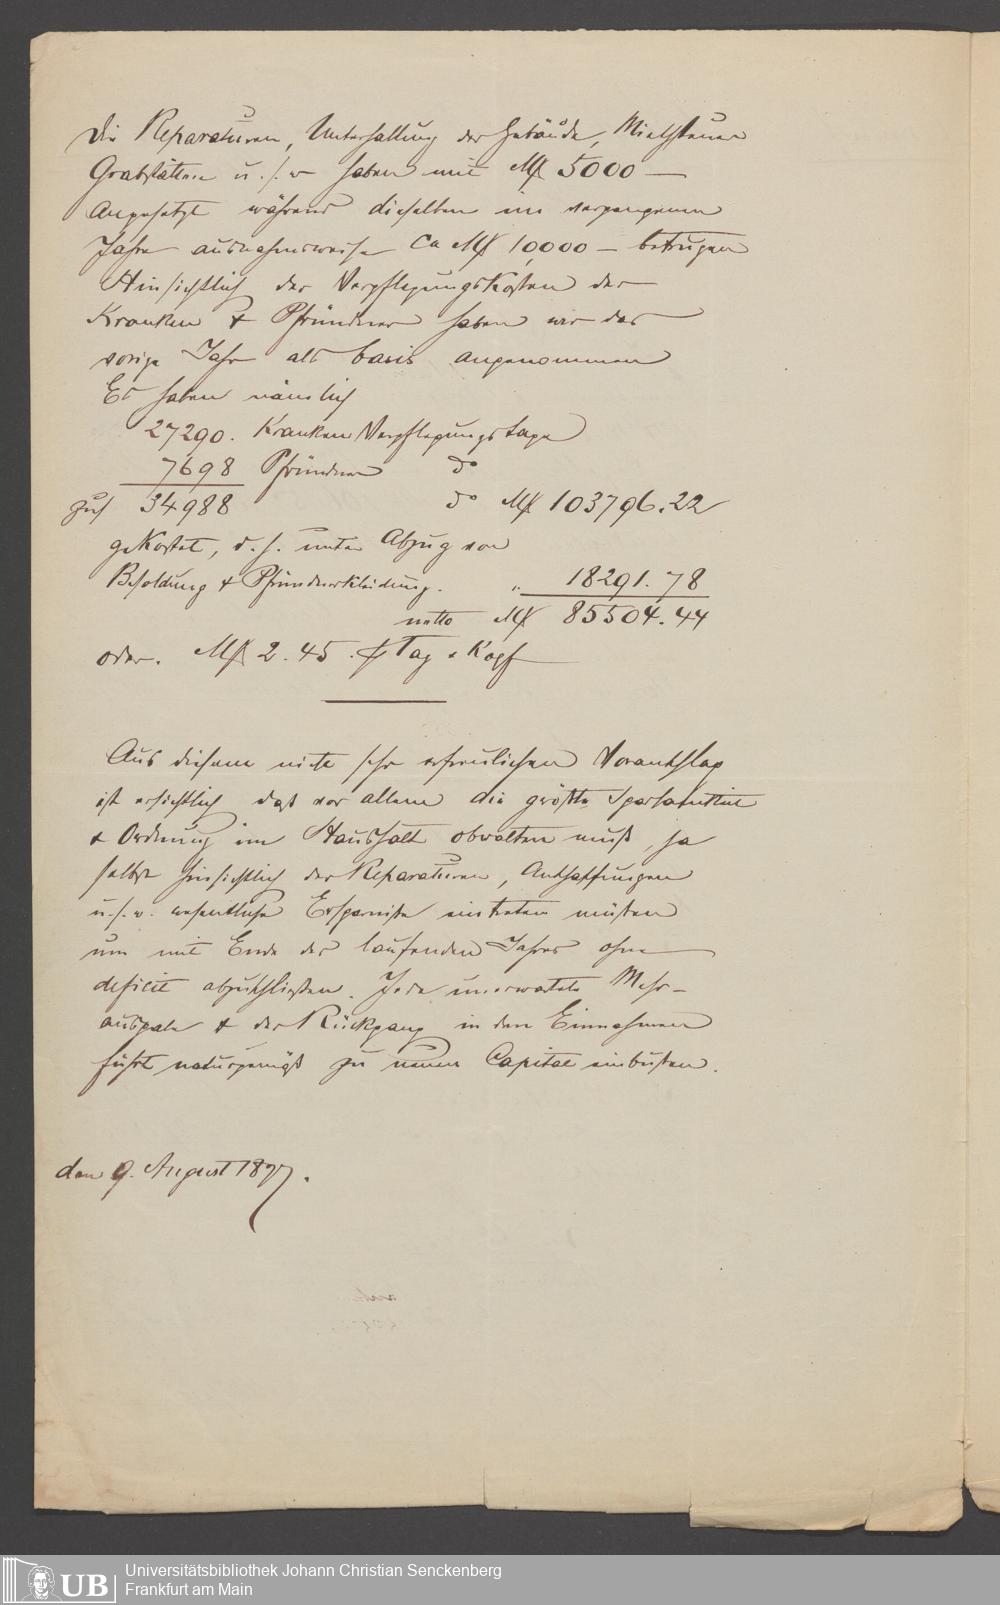 Die Reparaturen, Unterhaltung der Gebäude, Miethsteuer
Grabstätten u. s. w haben mit Mk 5000 —
angesetzt während dieselben im vergangenen
Jahre ausnahmsweise ca Mk 10,000 — betrugen
Hinsichtlich der Verpflegungskosten der
Kranken & Pfründner haben wir das
vorige Jahr als basis angenommen
Es haben nämlich
27290. Kranken Verpflegungstage
7698 Pfründner do
zus 34988 do Mk 103796.22
gekostet, d. h. unter Abzug von
Besoldung & Pfründnerkleidung. " 18291.78
netto Mk 85504.44
oder. Mk 2.45. Tag & Kopf
Aus diesem nicht sehr erfreulichen Voranschlag
ist ersichtlich daß vor allem die größte Sparsamkeit
& Ordnung im Haushalt obwalten muß, ja
selbst hinsichtlich der Reparaturen, Anschaffungen
u. s. w. wesentliche Ersparnisse eintreten müssen
um mit Ende des laufenden Jahres ohne
deficit abzuschließen. Jede unerwartete Mehr-
ausgabe & der Rückgang in den Einnahmen
führt naturgemäß zu neuen Capital einbußen.
den 9. August 1897.
Universitätsbibliothek Johann Christian Senckenberg
UB Frankfurt am Main